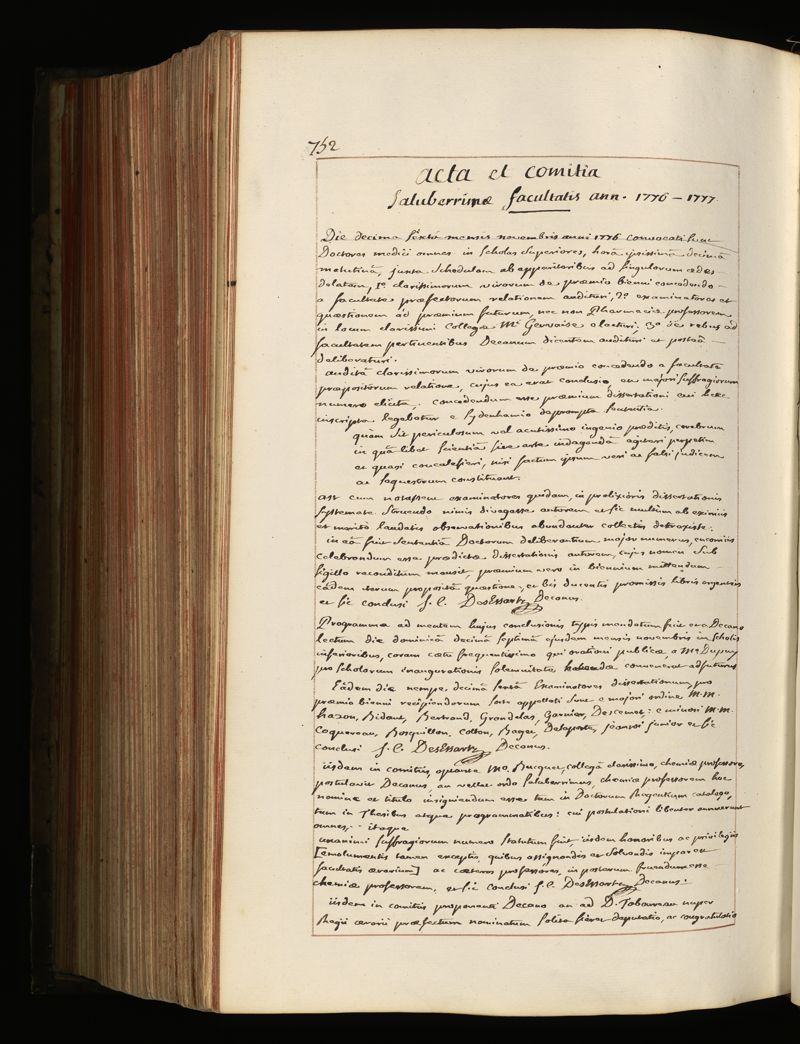 752
acta et comitia
Saluberrimæ facultatis ann. 1776 - 1777
Die decima sextâ mensis novembris anni 1776 convocati sunt
Doctores medici omnes in scholas superiores, horâ ipsissimâ decimâ
matutinâ, juxta schedulam ab apparitoribus ad singulorum ædes
delatam, 1º clarissimorum virorum de præmio bienni concedendo
a facultate præfectorum relationem audituri, 2º examinatores et
quæstionem ad præmium futurum, nec non Pharmaciæ professorem
in locum clarissimi Collegæ Mi Gervaise electuri; 3º de rebus ad
facultatem pertinentibus Decanum dicentem audituri et posteà
deliberaturi.
auditâ clarissimorum virorum de præmio concedendo a facultate
præpositorum relatione, cujus ea erat conclusio, ex majori suffragiorum
numero elicita, concedendum esse præmium dissertationi cui hæc
inscripta legebatur e Sydenhamio deprompta sententia.
quàm sit periculosum vel acutissimo ingenio præditis, cerebrum
in quâ libet scientiâ sive arte indagandâ agitari perpetim
et quasi concalefieri, nisi factum ipsum veri ac falsi judicem
ac sequestrum constituant.
ast cum notassent examinatores quidam, in prolixioris dissertationis
systemate struendo nimis divagasse autorem et sic multum ab eximiis
et meritò laudatis observationibus abundanter collectis detraxisse;
in eâ fuit sententiâ Doctorum deliberantium major numerus, encomiis
celebrandum esse prædictæ dissertationis autorem, cujus nomen sub
sigillo reconditum mansit, præmium vero in biennium mittendum
eâdem iterum propositâ quæstione, et bis ducentis promissis libris argenteis
et sic conclusi J. C. DesEssartz Decanus.
Programma ad mentem hujus conclusionis typis mandatum fuit et a Decano
lectum die dominicâ decimâ septimâ ejusdem mensis novembris in scholis
inferioribus, coram cœtu frequentissimo qui orationi publicæ a Mo Dupuy
pro scholarum inaugurationis solemnitate habendæ convenerat adfuturus
Eâdem die nempe decimâ sextâ Examinatores dissertationum pro
præmio bienni recipiendorum sorte appellati sunt e majori ordine M.M.
hazon, Bidault, Bertrand, Grandelas, Garnier, Descemet; e minori M.M.
Coquereau, Bosquillon, Collon, Roger, Delaporte, jeanroi junior et sic
conclusi J. C. DesEssartz Decanus.
iisdem in comitiis, optante Mo. Bucquet, collegâ clarissimo, chemiæ professore,
postulavit Decanus, an vellet ordo saluberrimus, chemiæ professorem hoc
nomine et titulo insigniendum esse tum in Doctorum Regentium catalogo,
tum in Thesibus atque programmatibus: cui postulationi libenter annuerunt
omnes, itaque
unanimi suffragiorum numero statutum fuit iisdem honoribus ac privilegiis
[emolumentis tamen exceptis, quibus assignandis et solvendis impar est
facultatis ærarium] ac cæteros professores, in posterum fruendum esse
chemiæ professorem, et sic conclusi J. C. DesEssartz Decanus.
iisdem in comitiis proponenti Decano an ad D. Taboureau nuper
Regii ærarii præfectum nominatum solita fieret deputatio, ac congratulatio